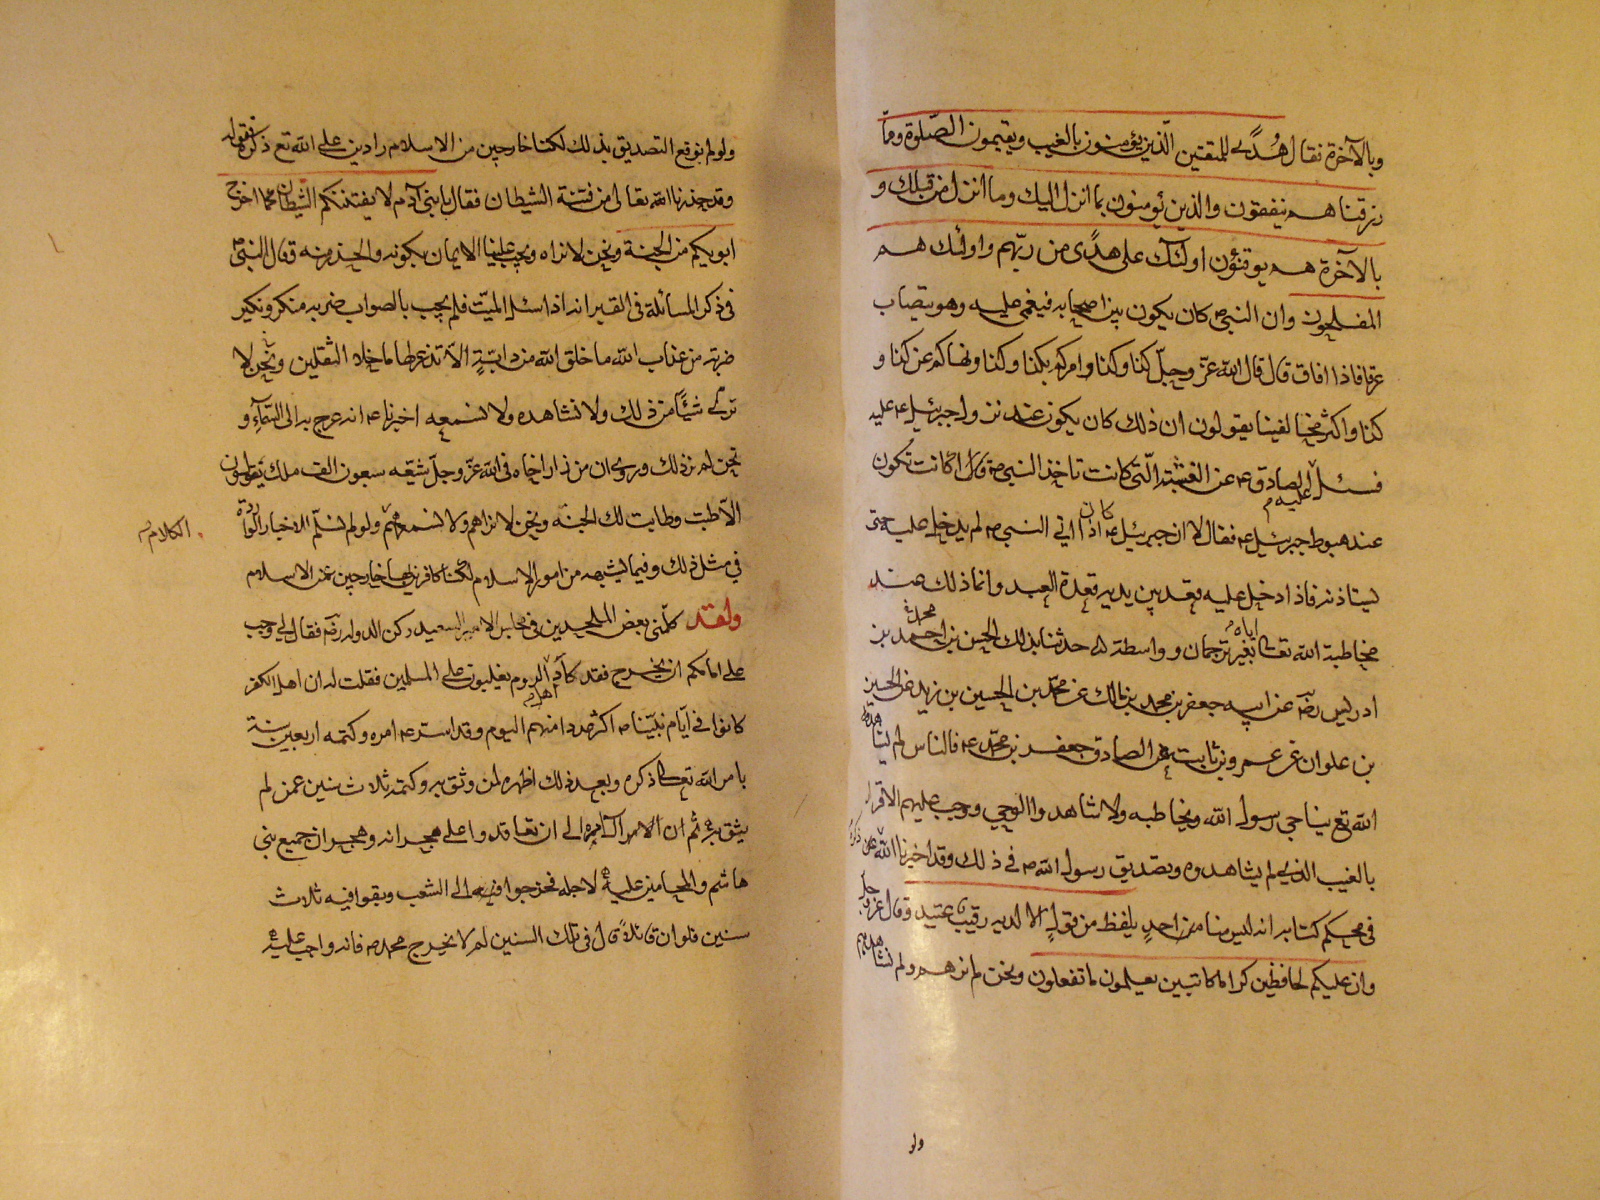 وبالآخرة فقال هُدًى للمتقين الّذين يؤمنون بالغيب ويقيمون الصّلوة وممّا
رزقناهم ينفقون والذين يؤمنون بما انزل اليك وما انزل من قبلك و
بالآخرة هم يوقنون اولئك على هدًى من ربّهم واولئك هم
المفلحون وان النبي ص كان يكون بين اصحابه فيغمى عليه وهو يتصاب
عرقا فاذا افاق قال قال الله عزّ وجلّ كذا وكذا وامركم بكذا وكذا ونهاكم عن كذا و
كذا واكثر مخالفينا يقولون ان ذلك كان يكون عند نزول جبرئيل ع عليه
فسئل الصادق ع عن الغشية الّتي كانت تاخذ النبي ص اكانت تكون
عند هبوط جبرئيل ع فقال لا ان جبرئيل ع كان اذا اتى النبي ص لم يدخل عليه حتى
يستاذنه فاذا دخل عليه قعد بين يديه قعدة العبد وانما ذلك عند
مخاطبة الله تعالى اياه بغير ترجمان وواسطة حدثنا بذلك الحسن بن احمد بن
ادريس رضه عن ابيه جعفر بن محمد بن مالك عن محمّد بن الحسين بن زيد عن الحسين
بن علوان عن عمرو بن ثابت عن الصادق جعفر بن محمّد ع فالناس لم يشاهدوا
الله تع يناجي رسول الله ويخاطبه ولا شاهدوا الوحي ووجب عليهم الاقرار
بالغيب الذي لم يشاهدوه وتصديق رسول الله ص في ذلك وقد اخبرنا الله عز ذكره
في محكم كتابه انه ليس منا من احدٍ يلفظ من قولٍ الا لديه رقيب عتيد وقال عز وجل
وان عليكم لحافظين كراما كاتبين يعلمون ما تفعلون ونحن لم نرهم ولم نشاهدهم
ولو
ولو لم نوقع التصديق بذلك لكنا خارجين من الاسلام رادين على الله تع ذكره قوله
وقد حذرنا الله تعالى من فتنة الشيطان فقال يا بني آدم لا يفتننكم الشيطان كما اخرج
ابويكم من الجنة ونحن لا نراه ويجب علينا الايمان بكونه والحذر منه وقال النبي ص
في ذكر المسائلة في القبر انه اذا سئل الميّت فلم يجب بالصواب ضربه منكر ونكير
ضربة من عذاب الله ما خلق الله من دابّةٍ الا تذعر لها ما خلا الثقلين ونحن لا
نرى شيئًا من ذلك ولا نشاهده ولا نسمعه اخبرنا ع انه عرج به الى السّماء و
نحن لم نر ذلك وروى ان من زار اخاه في الله عزّ وجلّ شيّعه سبعون الف ملك يقولون
الا طبت وطابت لك الجنة ونحن لا نراهم ولا نسمعهم ولو لم نسلّم الاخبار الواردة
في مثل ذلك وفيما يشبهه من امور الاسلام لكنا كافرين بها خارجين عن الاسلام
الكلام
ولقد كلّمني بعض الملحدين في مجلس الامير السعيد ركن الدولة رضه فقال لي وجب
على امامكم ان يخرج فقد كاد اهل الروم يغلبون على المسلمين فقلت له ان اهل الكفر
كانوا في ايام نبيّنا ص اكثر عددا منهم اليوم وقد استر ع امره وكتمه اربعين سنة
بامر الله تعالى ذكره وبعد ذلك اظهره لمن وثق به وكتمه ثلاث سنين عمن لم
يثق به ثم ان الامر الى ان تعاقدوا على هجرانه وهجران جميع بني
هاشم والمحامين عليه لاجله فخرجوا الى الشعب وبقوا فيه ثلاث
سنين فلو ان قائلاً قال في تلك السنين لم لا يخرج محمد ص فانه واجب عليه